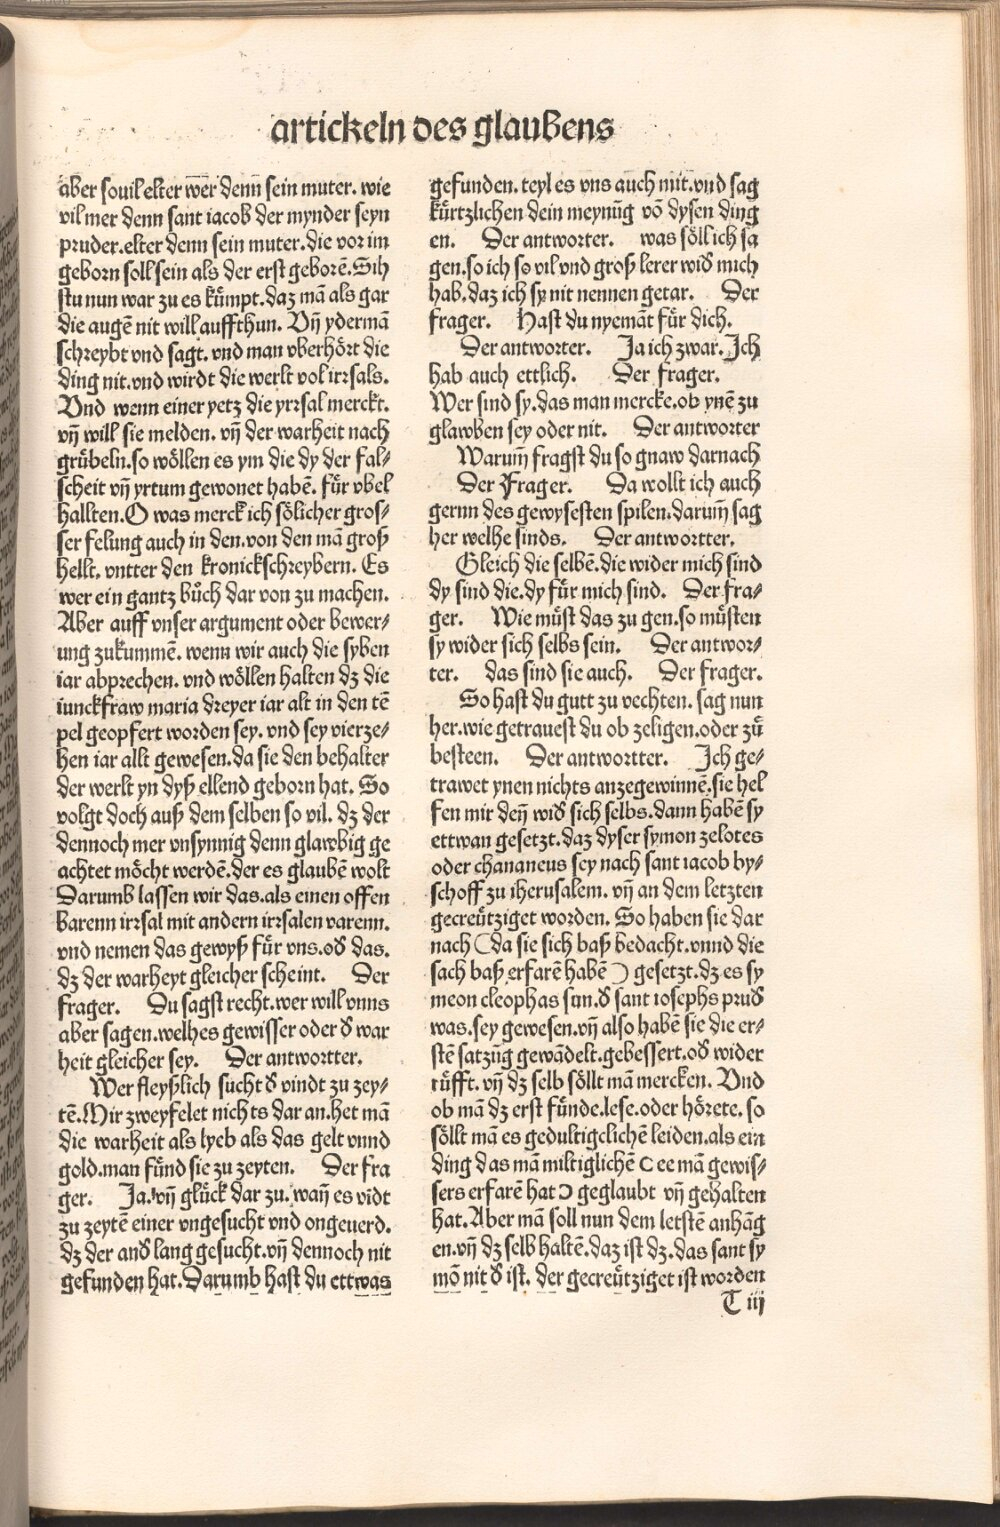 artickeln des glaubens
aber souil elter wer denn sein muter. wie
vil mer denn sant iacob der mynder seyn
pruder. elter denn sein muter. die vor im
geborn soll sein als der erst geborē. Sih
stu nun war zu es kümpt. daz mā als gar
die augē nit will auffthun. Vñ ydermā
schreybt vnd sagt. vnd man vberhört die
ding nit. vnd wirdt die werlt vol irrsals.
Vnd wenn einer yetz die yrrsal merckt.
vñ will sie melden. vñ der warheit nach
grübeln. so wöllen es ym die dy der fal⸗
scheit vñ yrtum gewonet habē. für vbel
hallten. O was merck ich sölicher gros⸗
ser felung auch in den. von den mā groß
hellt. vntter den kronickschreybern. Es
wer ein gantz bůch dar von zu machen.
Aber auff vnser argument oder bewer⸗
ung zukummē. wenn wir auch die syben
iar abprechen. vnd wöllen halten dz die
iunckfraw maria dreyer iar alt in den tē
pel geopfert worden sey. vnd sey vierze⸗
hen iar allt gewesen. da sie den behalter
der werlt yn dyß ellend geborn hat. So
volgt doch auß dem selben so vil. dz der
dennoch mer vnsynnig denn glawbig ge
achtet möcht werdē. der es glaubē wolt
Darumb lassen wir das. als einen offen
barenn irrsal mit andern irrsalen varenn.
vnd nemen das gewyß für vns. oð das.
dz der warheyt gleicher scheint. Der
frager. Du sagst recht. wer will vnns
aber sagen. welhes gewisser oder ð war
heit gleicher sey. Der antwortter.
Wer fleyßlich sucht ð vindt zu zey⸗
tē. Mir zweyfelet nichts dar an. het mā
die warheit als lyeb als das gelt vnnd
gold. man fünd sie zu zeyten. Der fra
ger. Ja. vñ glück dar zu. wañ es vīdt
zu zeytē einer vngesucht vnd ongeuerd.
dz der anð lang gesucht. vñ dennoch nit
gefunden hat. Darumb hast du ettwas
gefunden. teyl es vns auch mit. vnd sag
kürtzlichen dein meynūg vō dysen ding
en. Der antworter. was söll ich sa
gen. so ich so vil vnd groß lerer wið mich
hab. daz ich sy nit nennen getar. Der
frager. Hast du nyemāt für dich.
Der antworter. Ja ich zwar. Jch
hab auch ettlich. Der frager.
Wer sind sy. das man mercke. ob ynē zu
glawben sey oder nit. Der antworter
Warum̄ fragst du so gnaw darnach
Der Frager. Da wollt ich auch
gernn des gewysesten spilen. darum̄ sag
her welhe sinds. Der antwortter.
Gleich die selbē. die wider mich sind
dy sind die. dy für mich sind. Der fra⸗
ger. Wie müst das zu gen. so müsten
sy wider sich selbs sein. Der antwor⸗
ter. das sind sie auch. Der frager.
So hast du gutt zu vechten. sag nun
her. wie getrauest du ob zeligen. oder zů
besteen. Der antwortter. Jch ge⸗
trawet ynen nichts anzegewinnē. sie hel
fen mir deñ wið sich selbs. dann habē sy
ettwan gesetzt. daz dyser symon zelotes
oder chananeus sey nach sant iacob by⸗
schoff zu iherusalem. vñ an dem letzten
gecreütziget worden. So haben sie dar
nach (da sie sich baß bedacht. vnnd die
sach baß erfarē habē) gesetzt. dz es sy
meon cleophas sun. ð sant iosephs pruð
was. sey gewesen. vñ also habē sie die er⸗
stē satzūg gewādelt. gebessert. oð wider
rüfft. vñ dz selb söllt mā mercken. Vnd
ob mā dz erst fünde. lese. oder hörete. so
söllt mā es gedultigclichē leiden. als ein
ding das mā miltiglichē (ee mā gewis⸗
sers erfarē hat) geglaubt vñ gehalten
hat. Aber mā soll nun dem letstē anhāg
en. vñ dz selb haltē. daz ist dz. das sant sy
mō nit ð ist. der gecreütziget ist worden
T iij